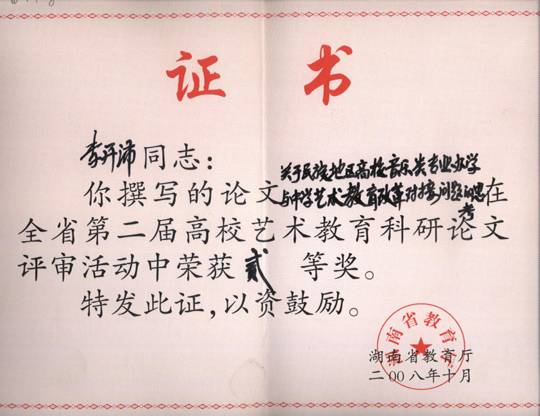 证 书
李开沛同志:
关于民族地区高校音乐类专业办学
你撰写的论文与中学艺术教育改革对接问题的思考在
全省第二届高校艺术教育科研论文
评审活动中荣获贰等奖。
特发此证,以资鼓励。
湖南省教育厅
湖南省教育厅
二00八年十月